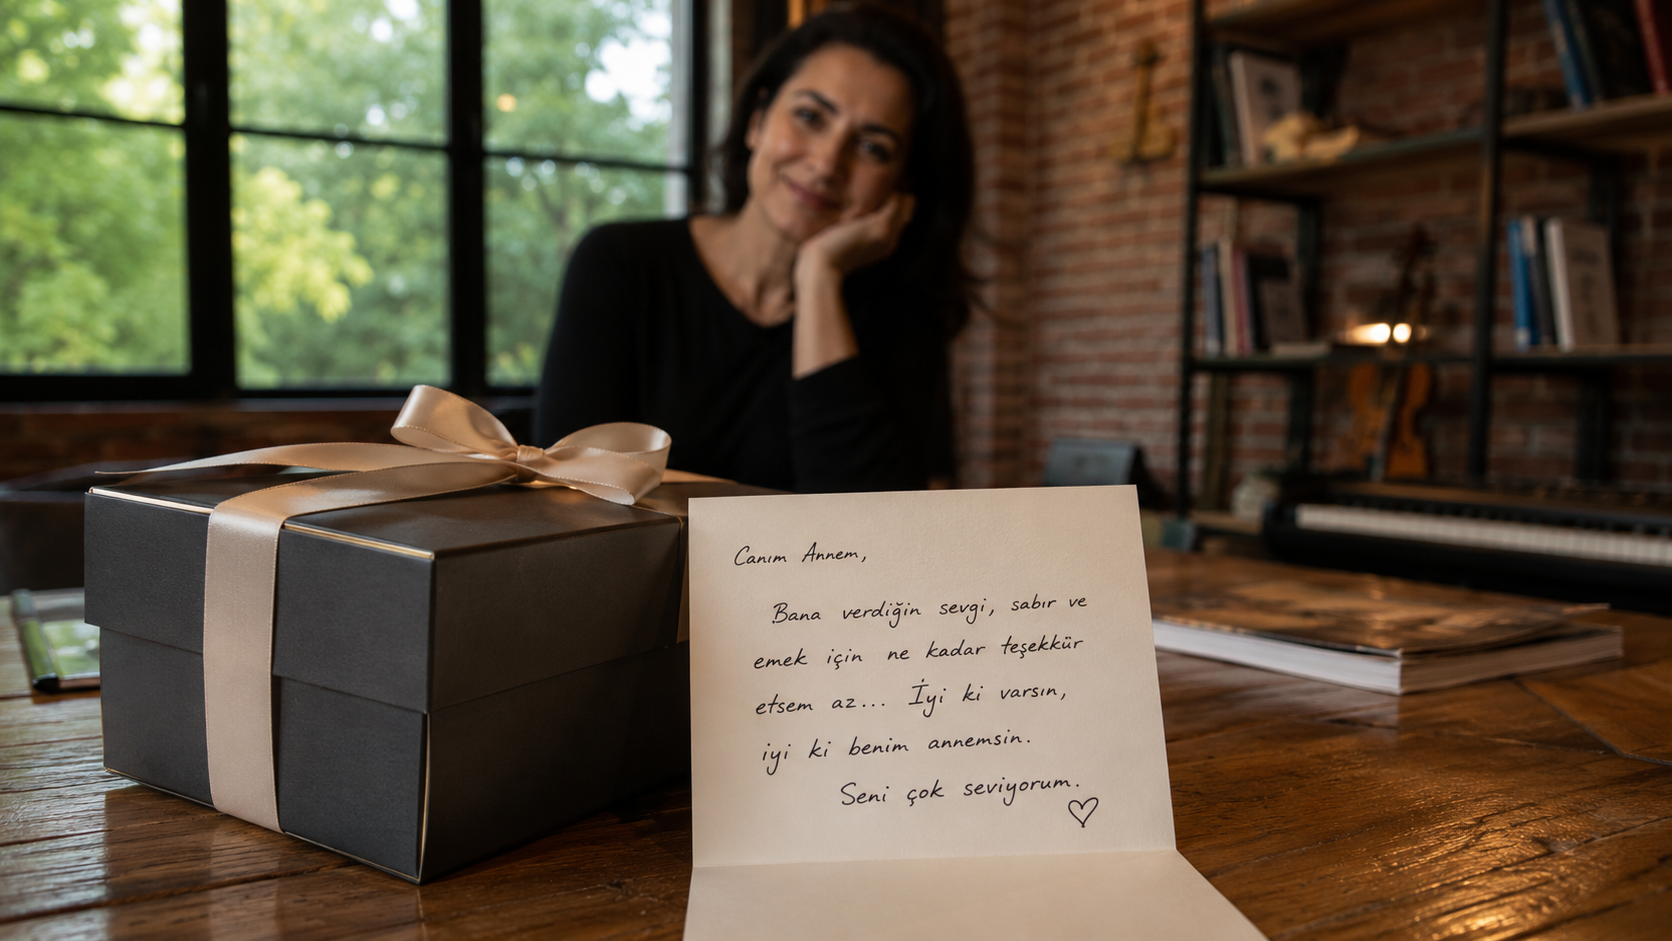 Canım Annem,
Bana verdiğin sevgi, sabır ve
emek için ne kadar teşekkür
etsem az... İyi ki varsın,
iyi ki benim annemsin.
Seni çok seviyorum.